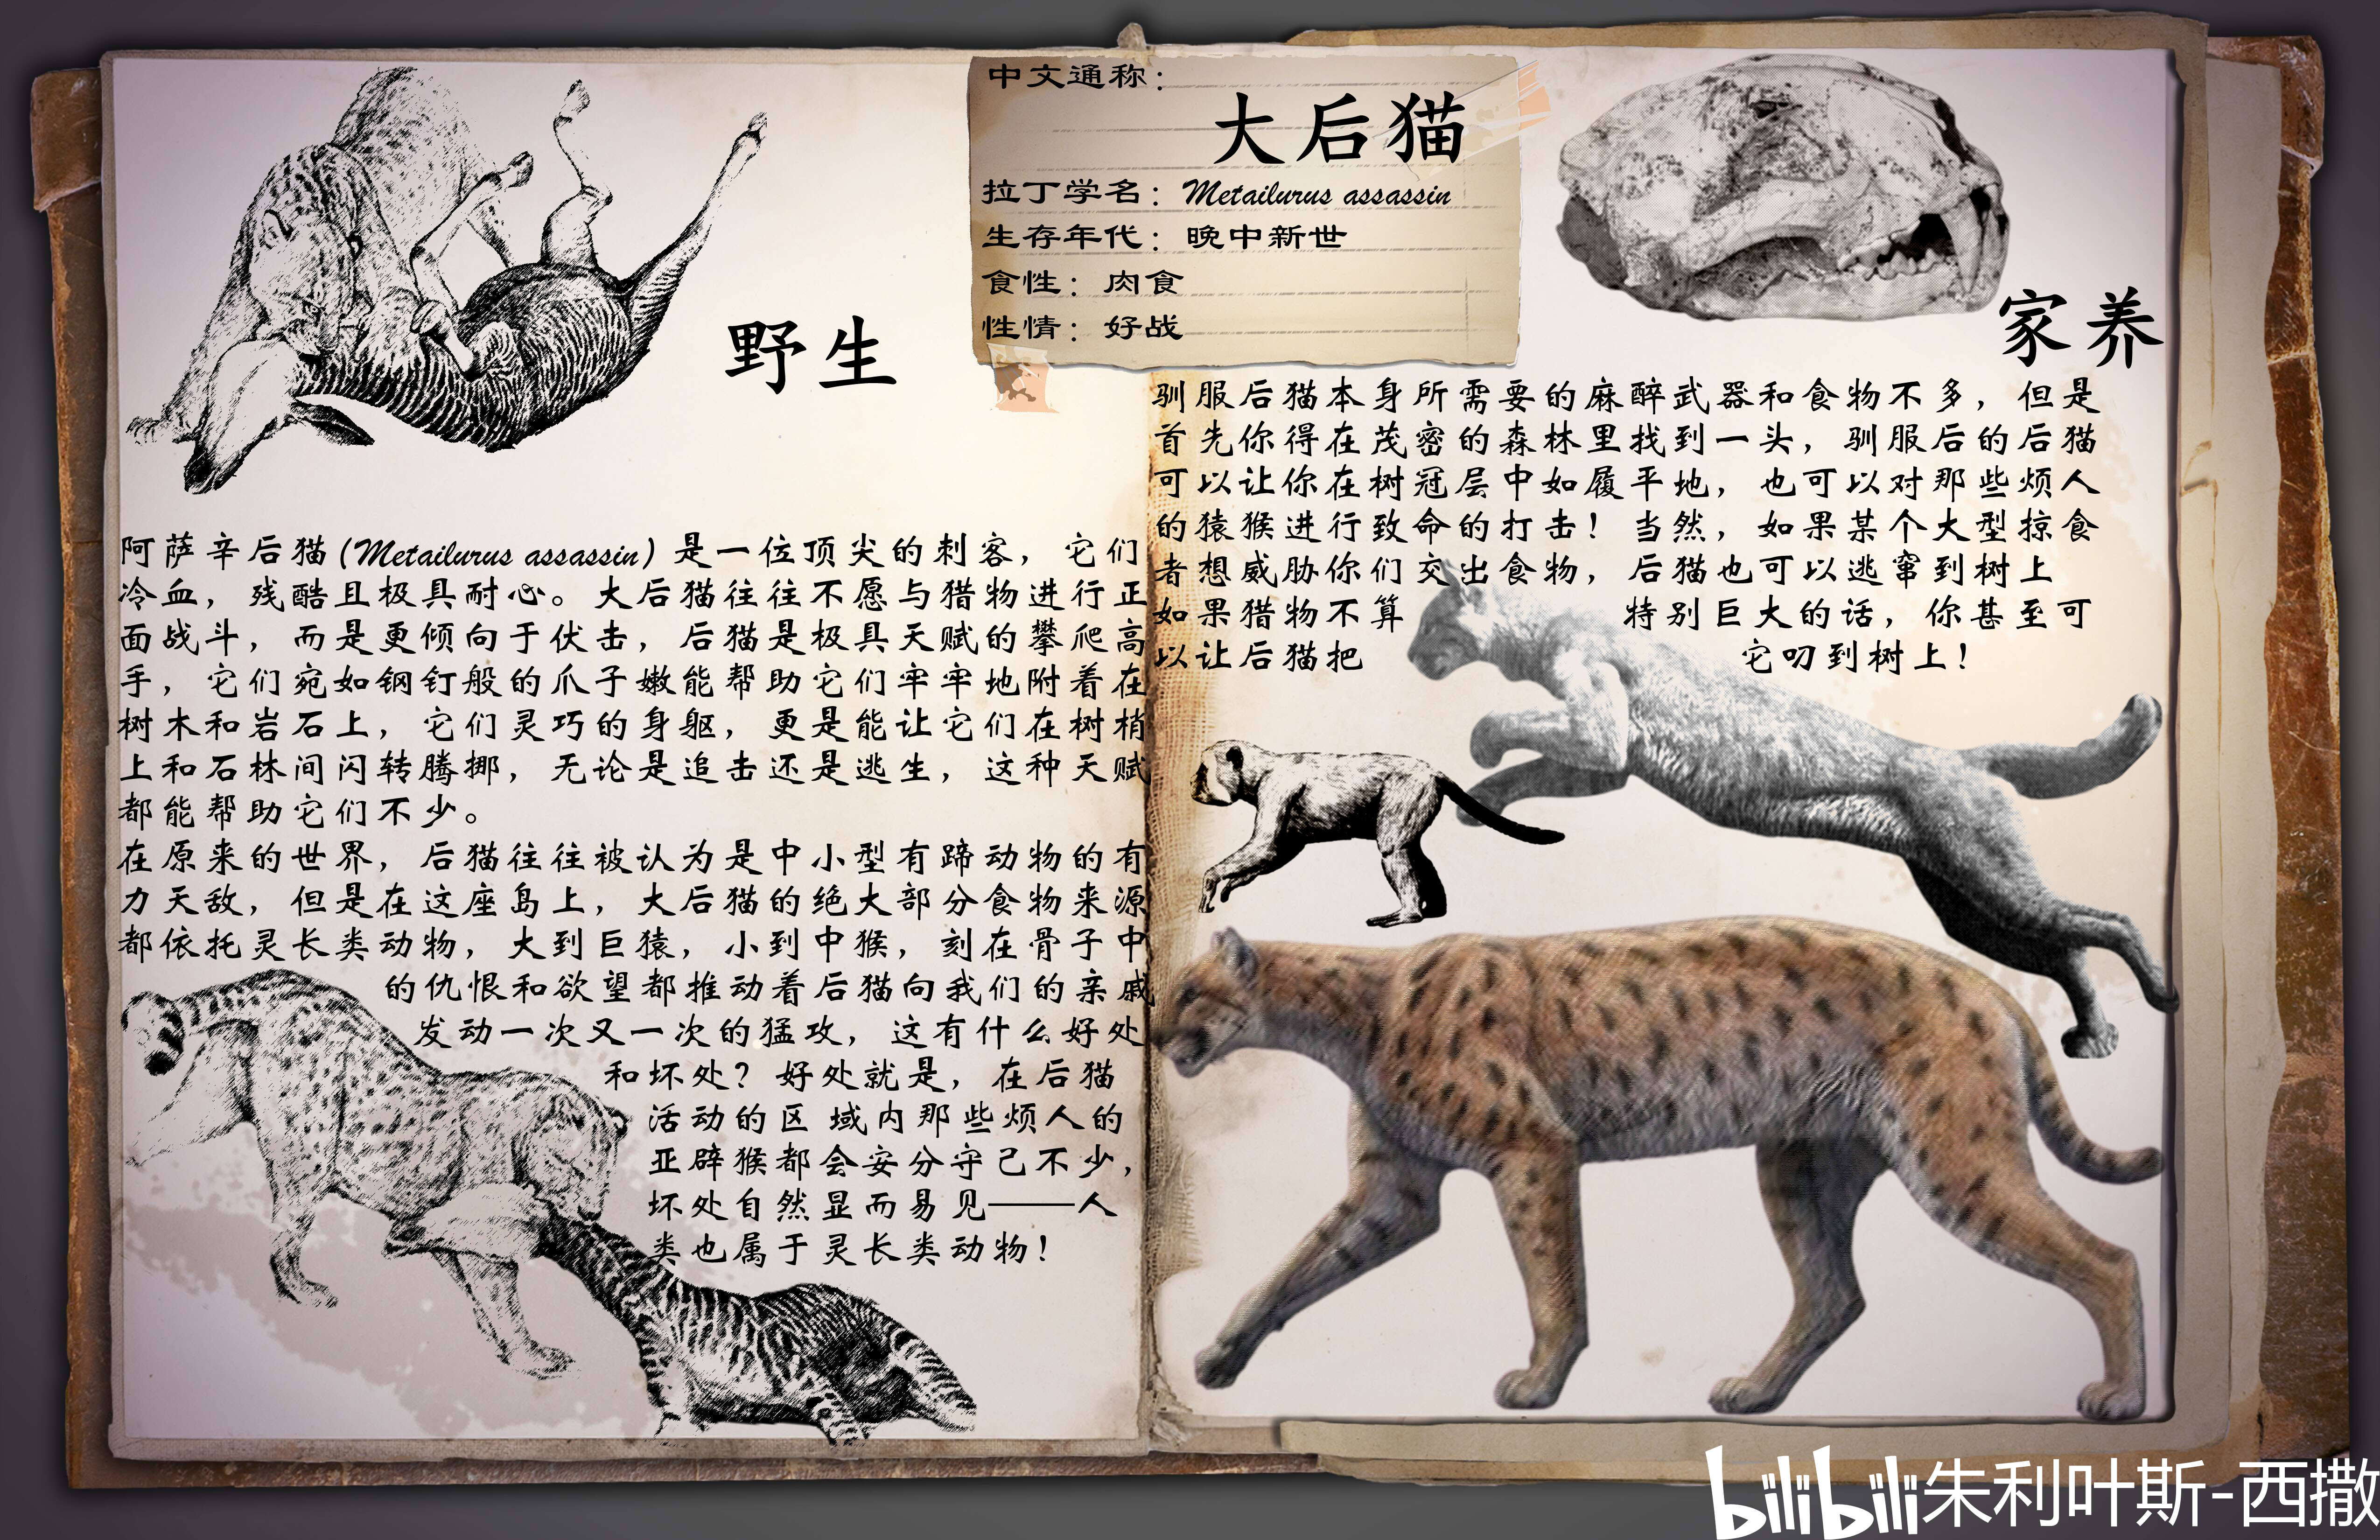 中文通称：
大后猫
拉丁学名：Metailurus assassin
生存年代：晚中新世
食性：肉食
性情：好战
野生
阿萨辛后猫(Metailurus assassin)是一位顶尖的刺客，它们
冷血，残酷且极具耐心。大后猫往往不愿与猎物进行正
面战斗，而是更倾向于伏击，后猫是极具天赋的攀爬高
手，它们宛如钢钉般的爪子嫩能帮助它们牢牢地附着在
树木和岩石上，它们灵巧的身躯，更是能让它们在树梢
上和石林间闪转腾挪，无论是追击还是逃生，这种天赋
都能帮助它们不少。
在原来的世界，后猫往往被认为是中小型有蹄动物的有
力天敌，但是在这座岛上，大后猫的绝大部分食物来源
都依托灵长类动物，大到巨猿，小到中猴，刻在骨子中
的仇恨和欲望都推动着后猫向我们的亲戚
发动一次又一次的猛攻，这有什么好处
和坏处？好处就是，在后猫
活动的区 域内那些烦人的
亚辟猴都会安分守己不少，
坏处自然显而易见——人
类也属于灵长类动物！
家养
驯服后猫本身所需要的麻醉武器和食物不多，但是
首先你得在茂密的森林里找到一头，驯服后的后猫
可以让你在树冠层中如履平地，也可以对那些烦人
的猿猴进行致命的打击！当然，如果某个大型掠食
者想威胁你们交出食物，后猫也可以逃窜到树上
如果猎物不算 特别巨大的话，你甚至可
以让后猫把 它叨到树上！
bilibili朱利叶斯-西撒